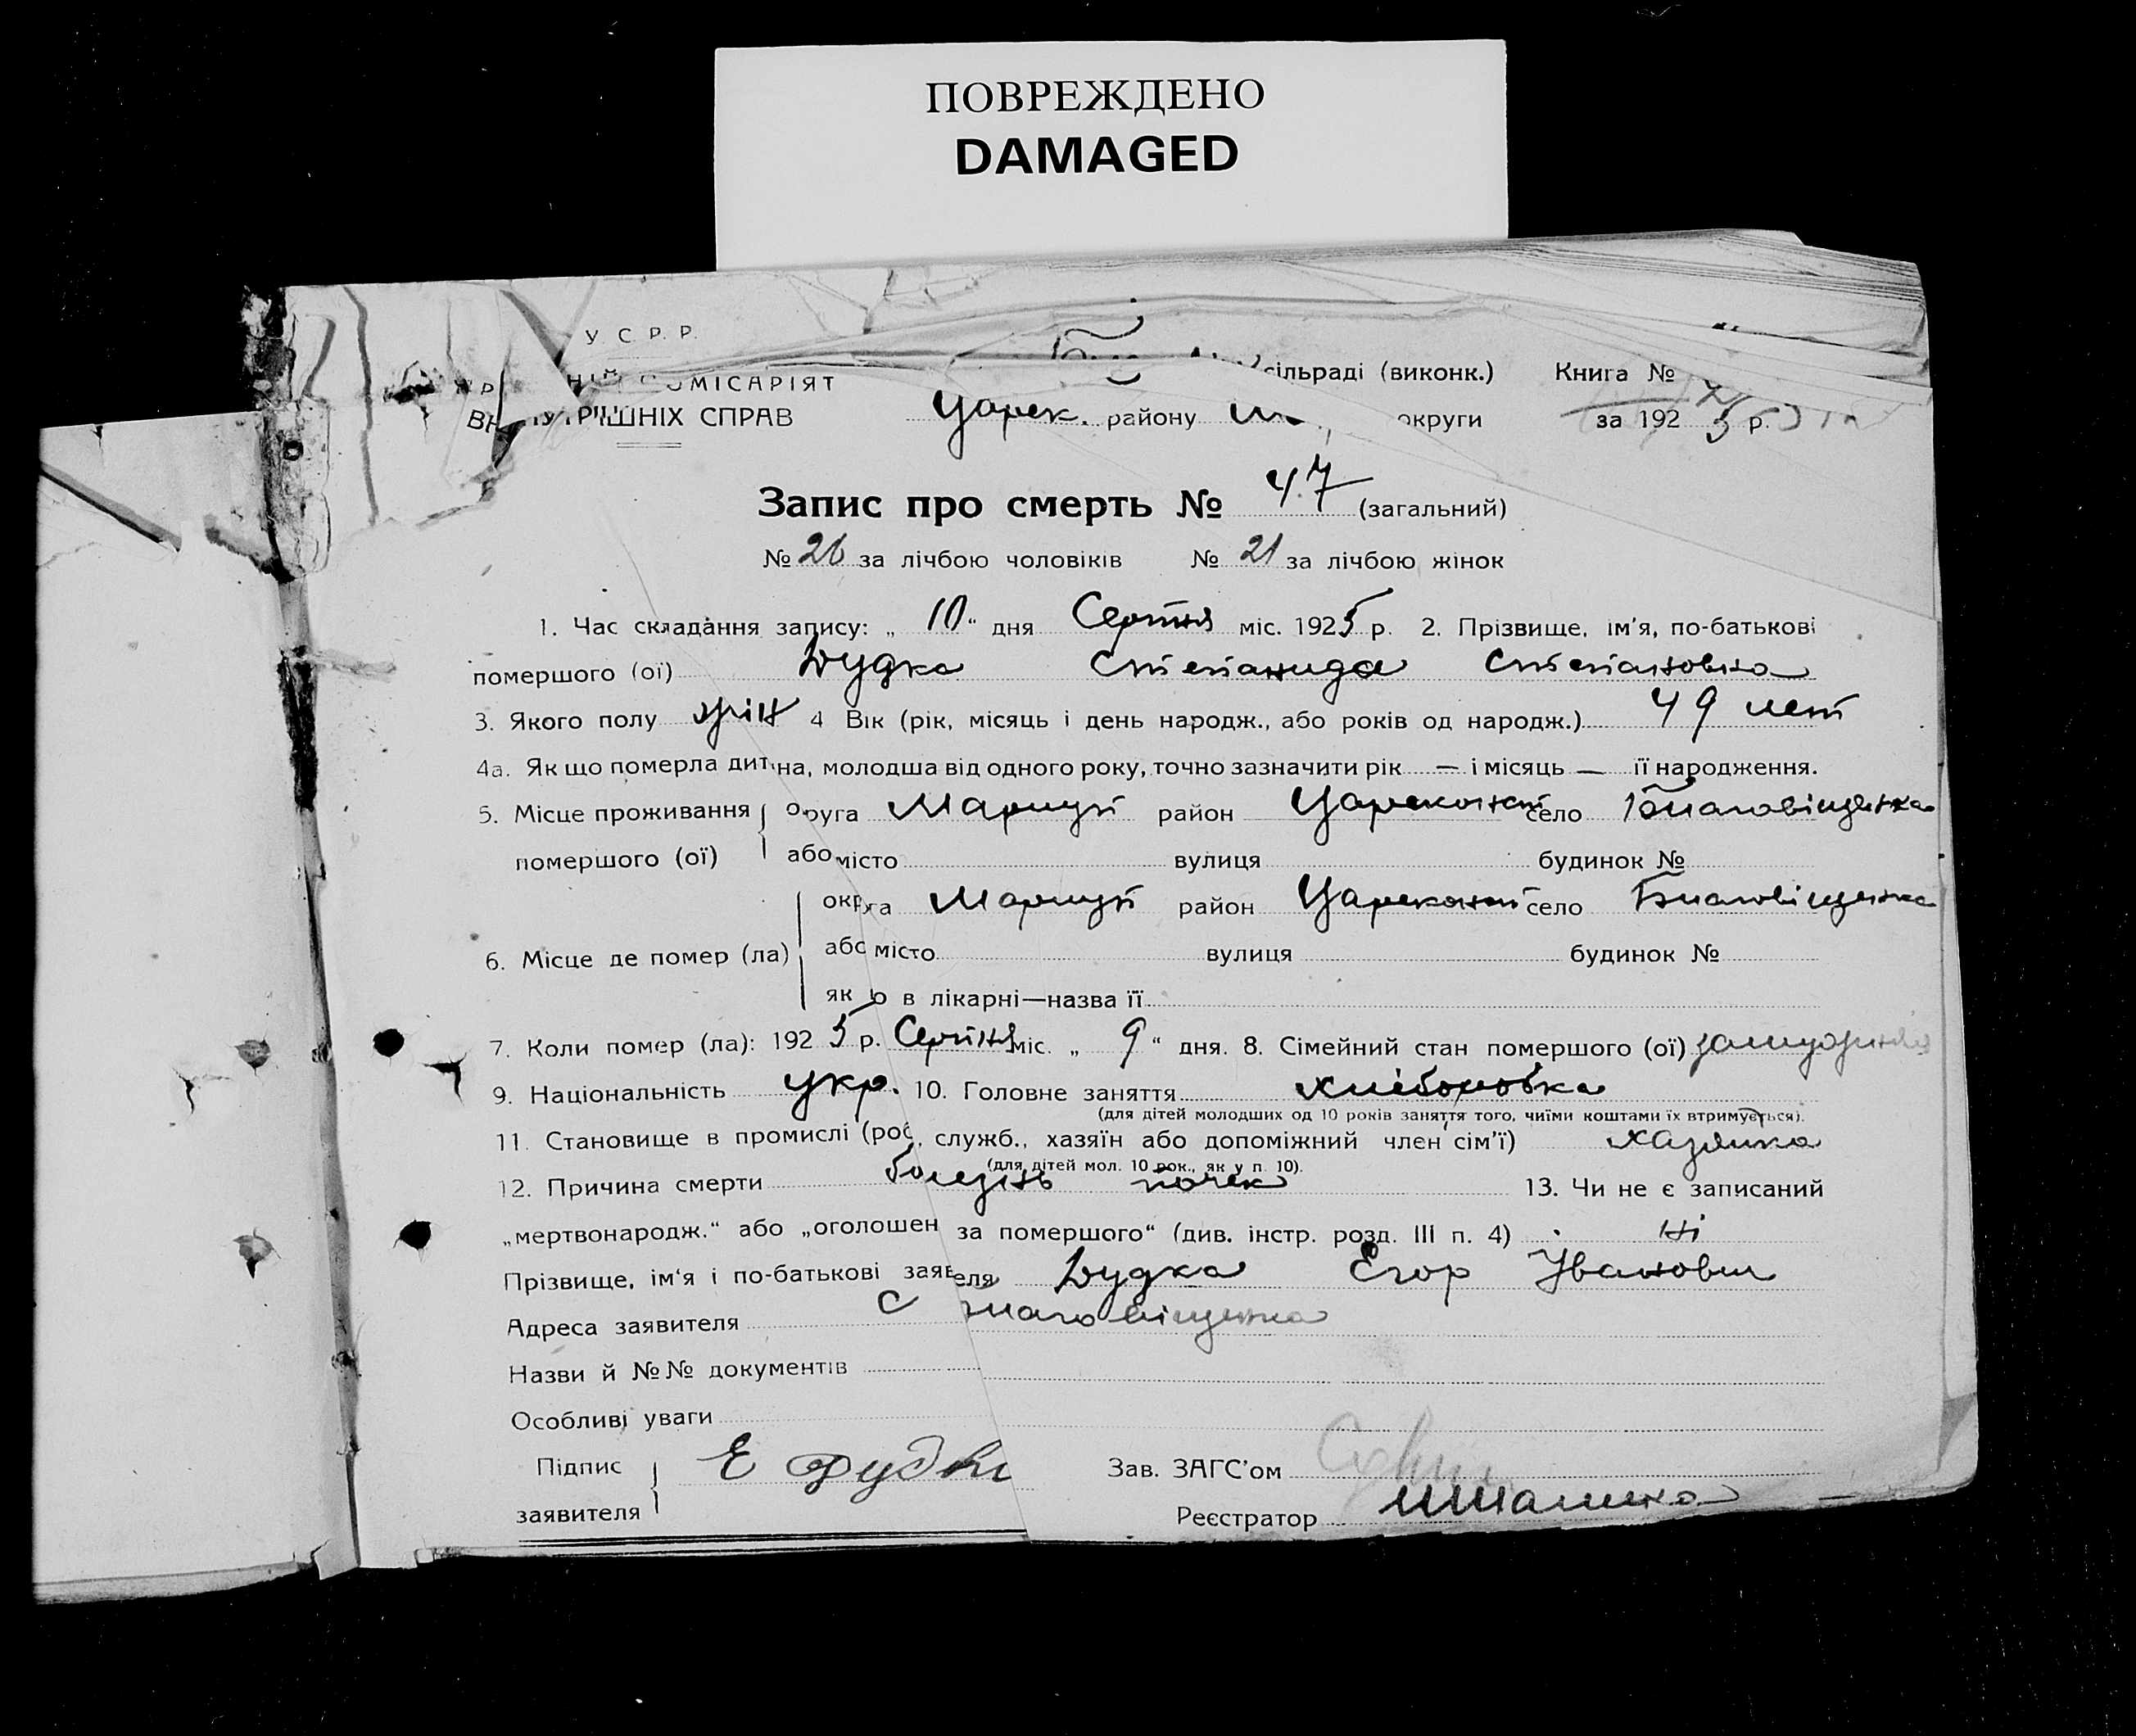 ПОВРЕЖДЕНО
DAMAGED
У С Р. Р.
ОМІСАРІЯТ
сільраді (виконк.) Книга №
РІШНІХ СПРАВ Царек. району округи за 1925 р.
Запис про смерть № 47 (загальний)
№ 26 за лічбою чоловіків № 21 за лічбою жінок
1. Час складання запису: „10“ дня Серпня міс. 1925 р. 2. Прізвище, ім'я, по-батькові
помершого (ої) Дудка Степанида Степановна
3. Якого полу жін 4 Вік (рік, місяць і день народж., або років од народж.) 49 лет
4а. Як що померла дитина, молодша від одного року, точно зазначити рік — і місяць — її народження.
5. Місце проживання округа Маріуп район Цареконст село Благовіщенка
помершого (ої) або місто вулиця будинок №
округа Маріуп район Цареконст село Благовіщенка
6. Місце де помер (ла) або місто вулиця будинок №
як о в лікарні—назва її
7. Коли помер (ла): 1925 р. Серпня міс. „9“ дня. 8. Сімейний стан помершого (ої) замужняя
9. Національність укр. 10. Головне заняття хліборобка
(для дітей молодших од 10 років заняття того, чиїми коштами їх втримується).
11. Становище в промислі (роб., служб., хазяїн або допоміжний член сім'ї) хазяика
(для дітей мол. 10 рок., як у п. 10).
12. Причина смерти болезнь почек 13. Чи не є записаний
„мертвонародж.“ або „оголошен за помершого“ (див. інстр. розд. III п. 4) Ні
Прізвище, ім'я і по-батькові заявителя Дудка Егор Іванович
Адреса заявителя с Благовіщенка
Назви й №№ документів
Особливі уваги
Підпис Е Дудка Зав. ЗАГС'ом
заявителя Реєстратор